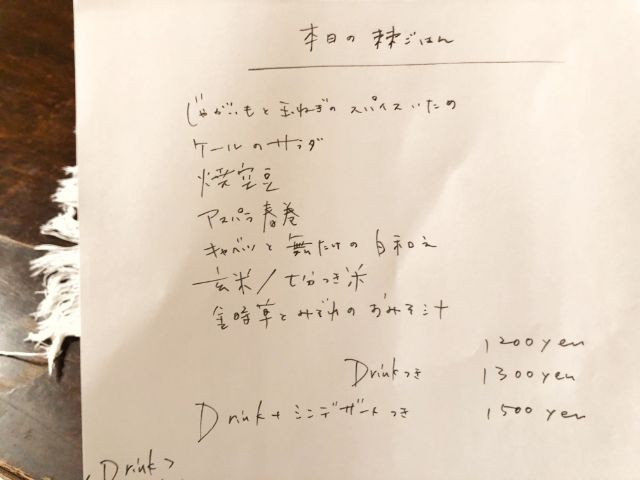 本日の 棘ごはん
じゃがいもと玉ねぎの スパイスいため
ケールのサラダ
焼空豆
アスパラ春巻
キャベツと舞たけの白和え
玄米/七分つき米
金時草とみぞれのおみそ汁
1200 yen
Drinkつき 1300 yen
Drink+ミニデザートつき 1500 yen
<Drink>